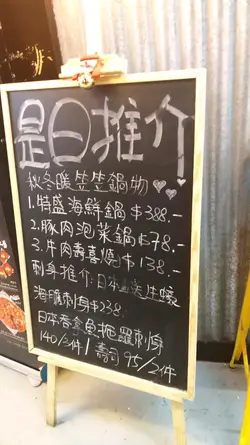 是日推介
秋冬暖笠笠鍋物
1.特盛海鮮鍋$388.-
2.豚肉泡菜鍋$78.-
3.牛肉壽喜燒$138.-
刺身推介:日本直送生蠔
海膽刺身$238.
日本吞拿魚拖羅刺身
140/3件/壽司95/2件